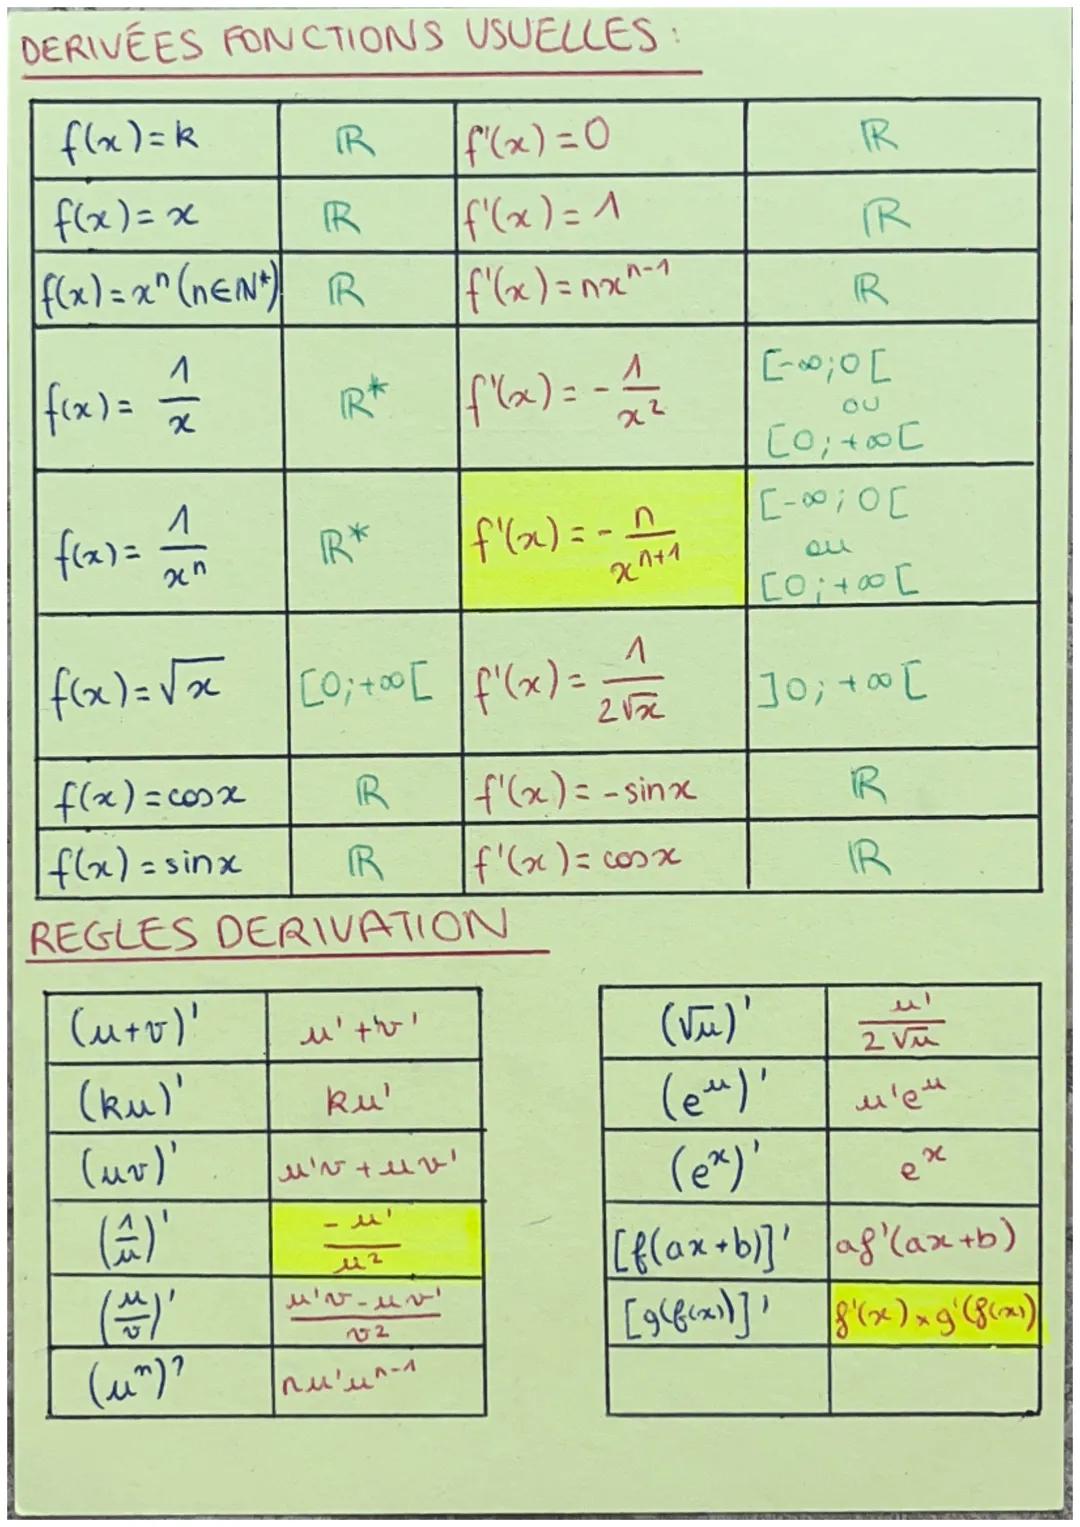 DERIVÉES FONCTIONS USUELLES :
f(x)=k ℝ f'(x)=0 ℝ
f(x)=x ℝ f'(x)=1 ℝ
f(x)=xⁿ (n∈ℕ*) ℝ f'(x)=nxⁿ⁻¹ ℝ
f(x)= 1/x ℝ* f'(x)= -1/x² [-∞;0[ ou [0;+∞[
f(x)= 1/xⁿ ℝ* f'(x)= -n/xⁿ⁺¹ [-∞;0[ ou [0;+∞[
f(x)=√x [0;+∞[ f'(x)= 1/2√x ]0;+∞[
f(x)=cosx ℝ f'(x)= -sinx ℝ
f(x)=sinx ℝ f'(x)=cosx ℝ
REGLES DERIVATION
(u+v)' u'+v'
(ku)' ku'
(uv)' u'v+uv'
(1/u)' -u'/u²
(u/v)' u'v-uv'/v²
(uⁿ)' nu'uⁿ⁻¹
(√u)' u'/2√u
(eᵘ)' u'eᵘ
(eˣ)' eˣ
[f(ax+b)]' af'(ax+b)
[g(f(x))]' f'(x)×g'(f(x))